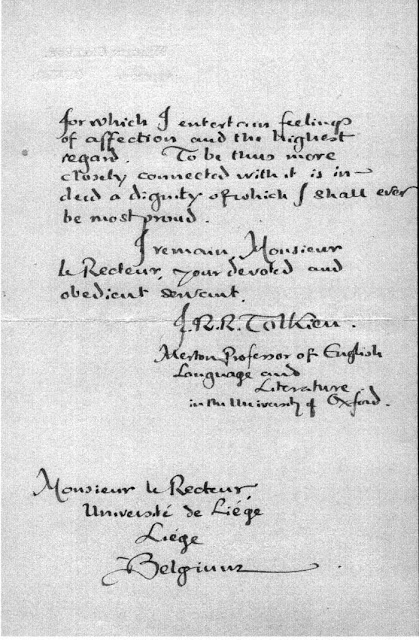 for which I entertain feelings
of affection and the highest
regard. To be thus more
closely connected with it is in-
deed a dignity of which I shall ever
be most proud.
I remain, Monsieur
le Recteur, your devoted and
obedient servant,
J.R.R. Tolkien.
Merton Professor of English
Language and
Literature
in the University of Oxford.
Monsieur le Recteur,
Université de Liége
Liége
Belgium